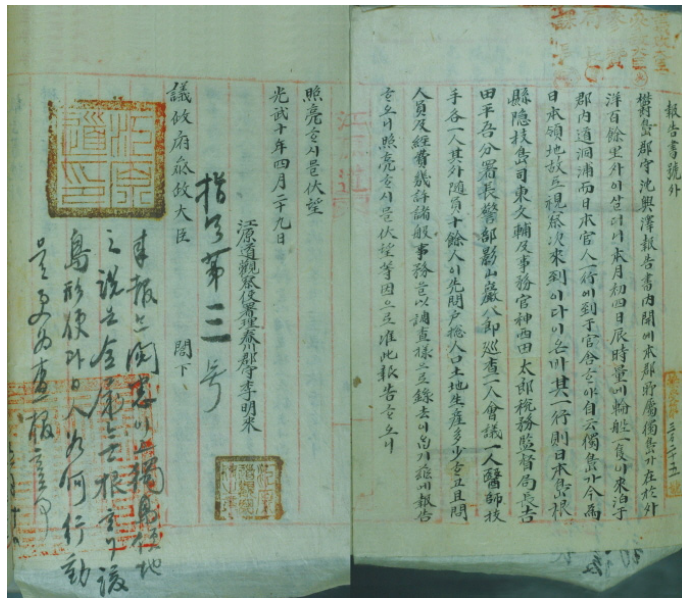 報告書號外
欝島郡守沈興澤報告書內開에本郡所屬獨島가在於外
洋百餘里外이살더니本月初四日辰時量에輪船一隻이來泊于
郡內道洞浦而日本官人一行이到于官舍ᄒᆞ야自云獨島가今爲
日本領地故로視察次來到이다이온바其一行則日本島根
縣隱技島司東文輔及事務官神西田太郎稅務監督局長吉
田平吾分署長警部影山巖八郎巡査一人會議一人醫師技
手各一人其外隨員十餘人이先問戶總人口土地生産多少ᄒᆞ고且問
人員及經費幾許諸般事務를以調査樣으로錄去이읍기玆에報告
ᄒᆞ오니照亮ᄒᆞ시믈伏望等因으로准此報告ᄒᆞ오니
照亮ᄒᆞ시믈伏望
光武十年四月二十九日
江原道觀察使署理春川郡守李明來
議政府參政大臣 閣下
指令第三号
來報는閱悉이고獨島領地
之說은全屬無根ᄒᆞ나該
島形便과日人如何行動
을更爲查報ᄒᆞᆯ事
江原道印